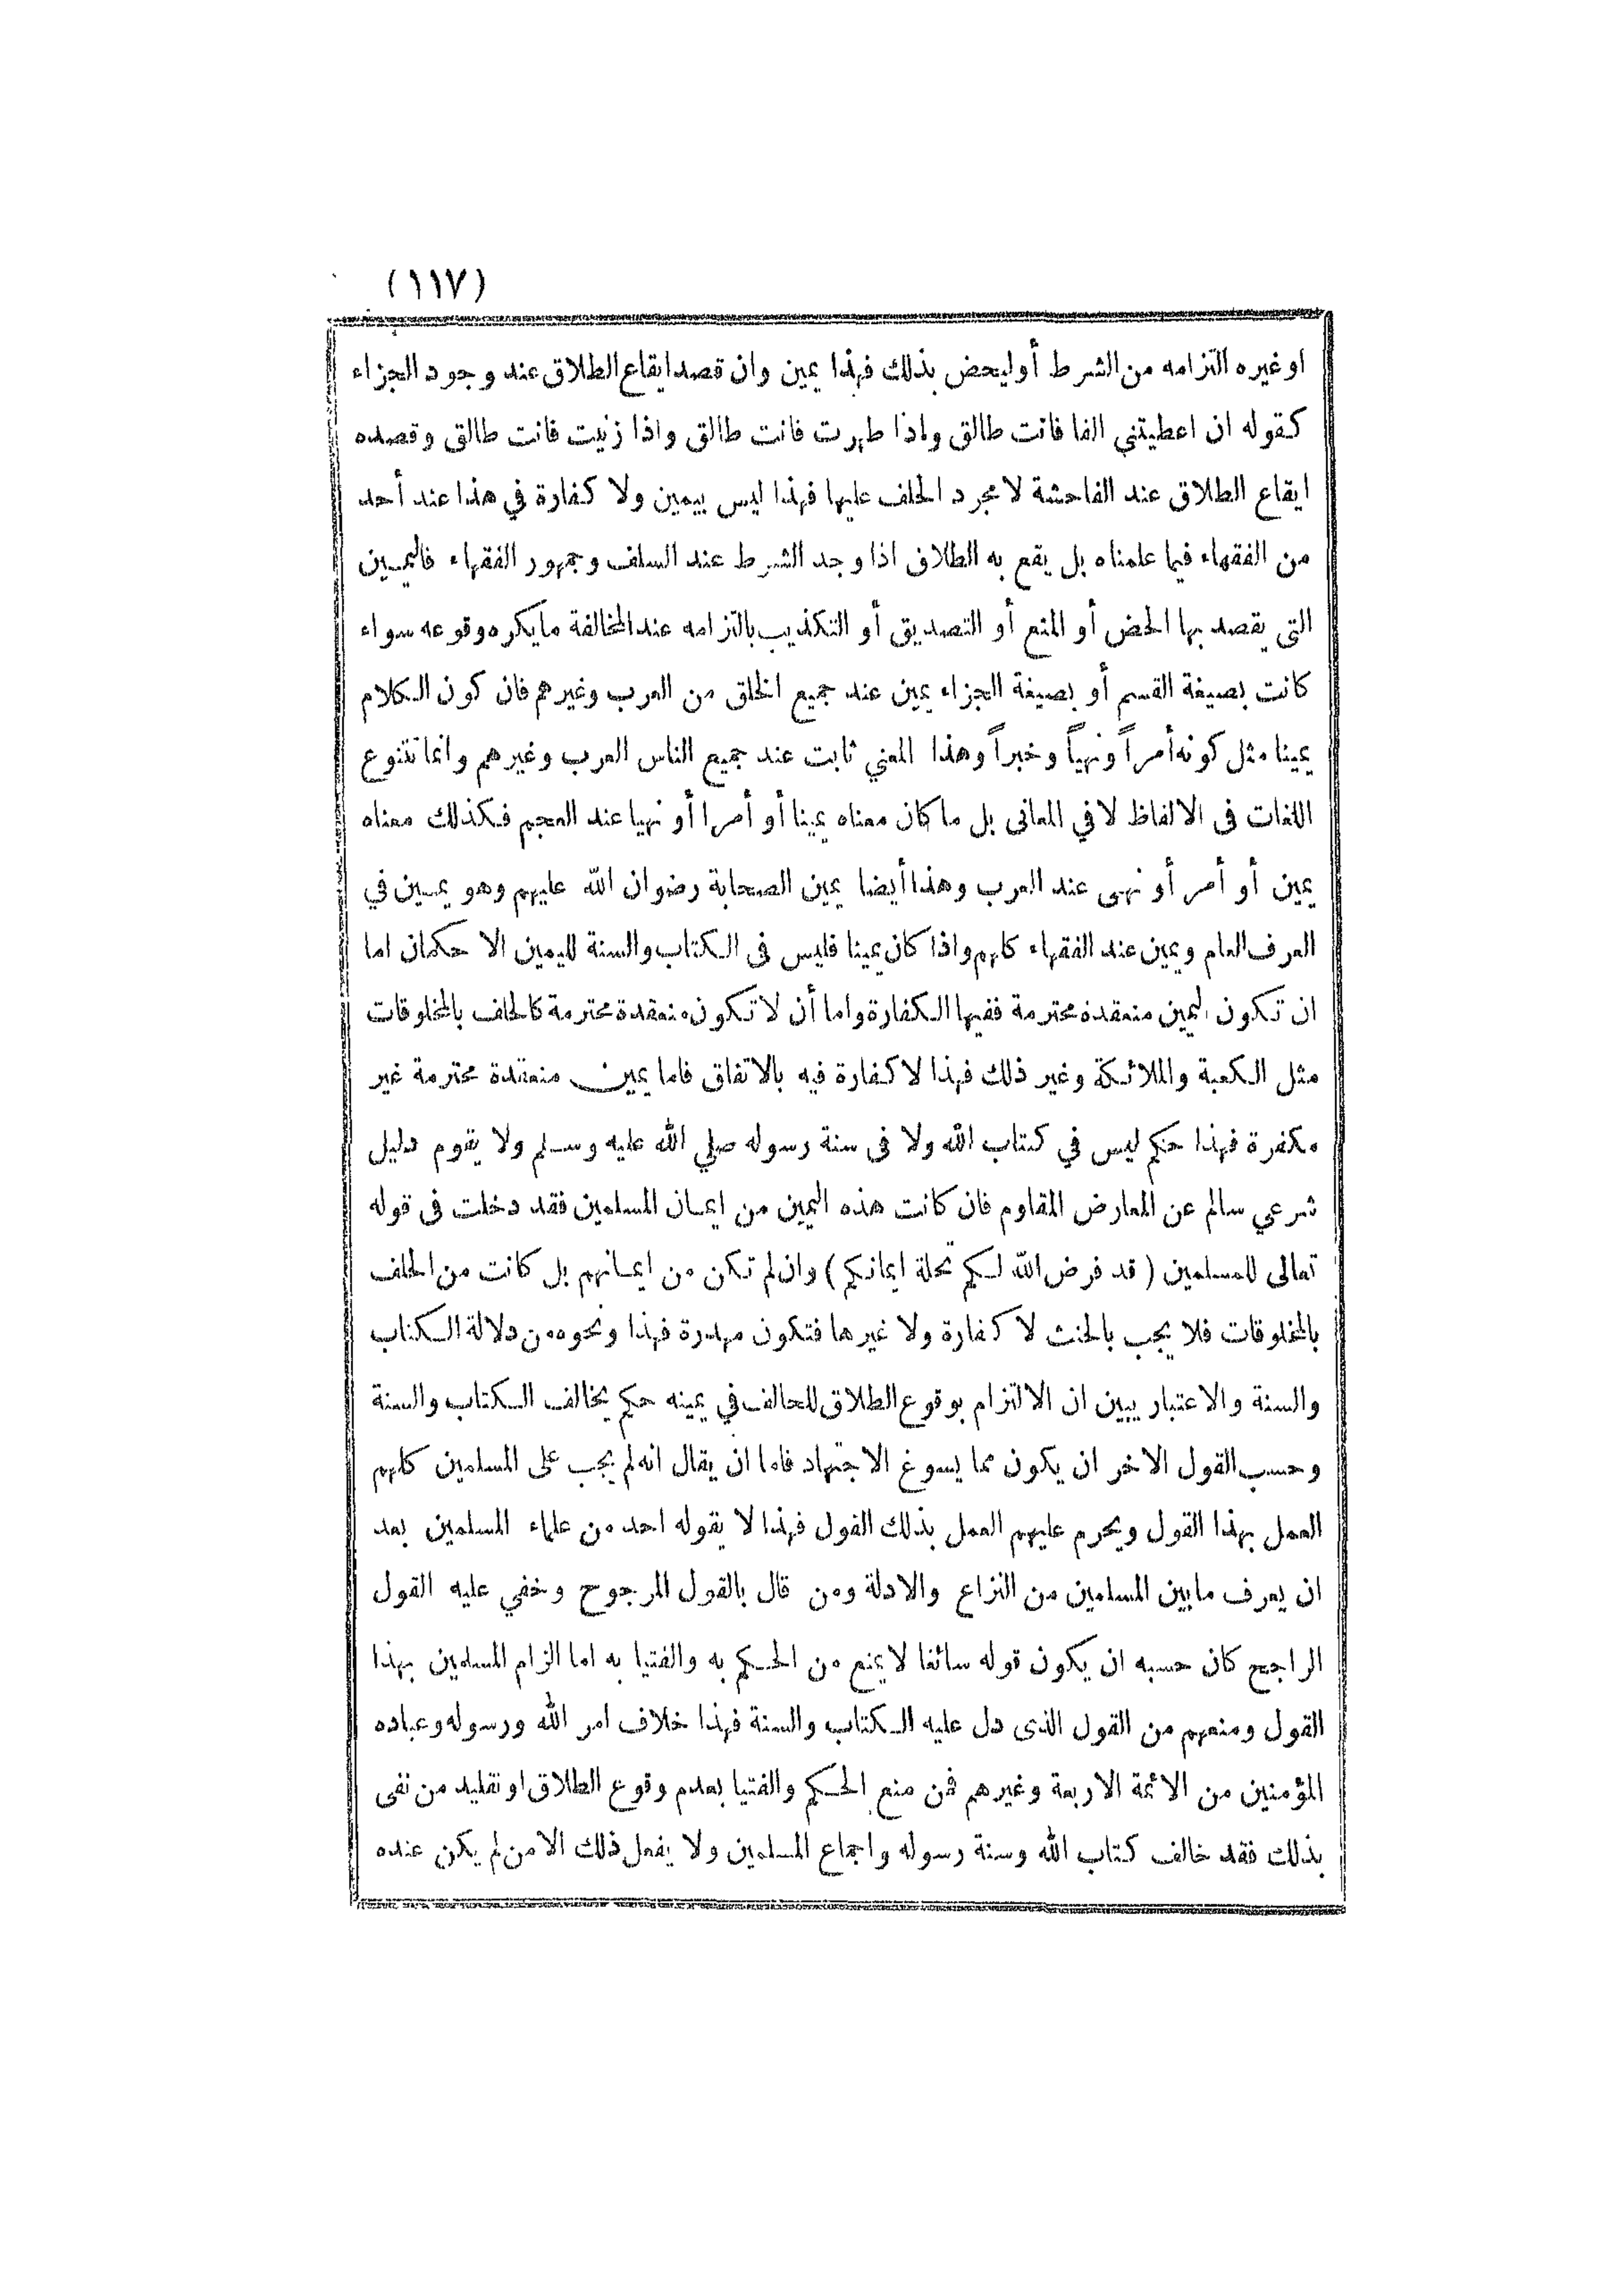 (١١٧)
او غيره التزامه من الشرط أو ليحض بذلك فهذا يمين وان قصد ايقاع الطلاق عند وجود الجزاء
كقوله ان اعطيتني الفا فانت طالق واذا طهرت فانت طالق واذا زنيت فانت طالق وقصده
ايقاع الطلاق عند الفاحشة لا مجرد الحلف عليها فهذا ليس بيمين ولا كفارة في هذا عند أحد
من الفقهاء فيما علمناه بل يقع به الطلاق اذا وجد الشرط عند السلف وجمهور الفقهاء فاليمين
التي يقصد بها الحض أو المنع أو التصديق أو التكذيب بالتزامه عند المخالفة ما يكره وقوعه سواء
كانت بصيغة القسم أو بصيغة الجزاء يمين عند جميع الخلق من العرب وغيرهم فان كون الكلام
يمينا مثل كونه أمراً ونهياً وخبراً وهذا المعني ثابت عند جميع الناس العرب وغيرهم وانما تتنوع
اللغات فى الالفاظ لا في المعانى بل ما كان معناه يمينا أو أمرا أو نهيا عند العجم فكذلك معناه
يمين أو أمر أو نهى عند العرب وهذا أيضا يمين الصحابة رضوان الله عليهم وهو يمين في
العرف العام ويمين عند الفقهاء كلهم واذا كان يمينا فليس فى الكتاب والسنة لليمين الا حكمان اما
ان تكون اليمين منعقدة محترمة ففيها الكفارة واما أن لا تكون منعقدة محترمة كالحلف بالمخلوقات
مثل الكعبة والملائكة وغير ذلك فهذا لا كفارة فيه بالاتفاق فاما يمين منعقدة محترمة غير
مكفرة فهذا حكم ليس في كتاب الله ولا فى سنة رسوله صلي الله عليه وسلم ولا يقوم دليل
شرعي سالم عن المعارض المقاوم فان كانت هذه اليمين من ايمان المسلمين فقد دخلت فى قوله
تعالى للمسلمين (قد فرض الله لكم تحلة ايمانكم) وان لم تكن من ايمانهم بل كانت من الحلف
بالمخلوقات فلا يجب بالحنث لا كفارة ولا غيرها فتكون مهدرة فهذا ونحوه من دلالة الكتاب
والسنة والاعتبار يبين ان الالتزام بوقوع الطلاق للحالف في يمينه حكم يخالف الكتاب والسنة
وحسب القول الاخر ان يكون مما يسوغ الاجتهاد فاما ان يقال انه لم يجب على المسلمين كلهم
العمل بهذا القول ويحرم عليهم العمل بذلك القول فهذا لا يقوله احد من علماء المسلمين بعد
ان يعرف ما بين المسلمين من النزاع والادلة ومن قال بالقول المرجوح وخفي عليه القول
الراجح كان حسبه ان يكون قوله سائغا لا يمنع من الحكم به والفتيا به اما الزام المسلمين بهذا
القول ومنعهم من القول الذى دل عليه الكتاب والسنة فهذا خلاف امر الله ورسوله وعباده
المؤمنين من الائمة الاربعة وغيرهم فمن منع الحكم والفتيا بعدم وقوع الطلاق او تقليد من نفى
بذلك فقد خالف كتاب الله وسنة رسوله واجماع المسلمين ولا يفعل ذلك الا من لم يكن عنده